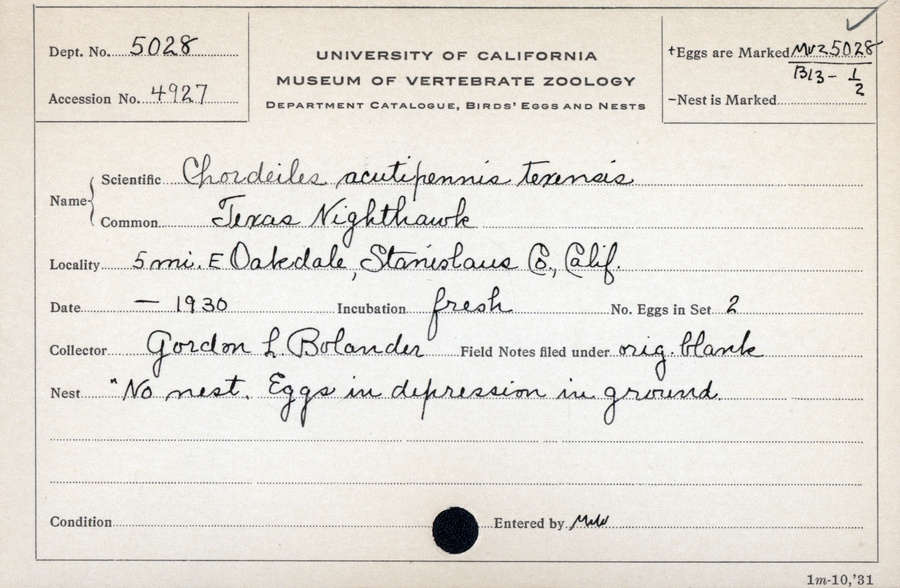 Dept. No. 5028
Accession No. 4927
UNIVERSITY OF CALIFORNIA
MUSEUM OF VERTEBRATE ZOOLOGY
DEPARTMENT CATALOGUE, BIRDS' EGGS AND NESTS
+Eggs are Marked MVZ 5028
B13- 1/2
-Nest is Marked
Name
Scientific Chordeiles acutipennis texensis
Common Texas Nighthawk
Locality 5 mi. E Oakdale, Stanislaus Co., Calif.
Date — 1930 Incubation fresh No. Eggs in Set 2
Collector Gordon L Bolander Field Notes filed under orig. blank
Nest "No nest. Eggs in depression in ground.
Condition Entered by
1m-10,'31